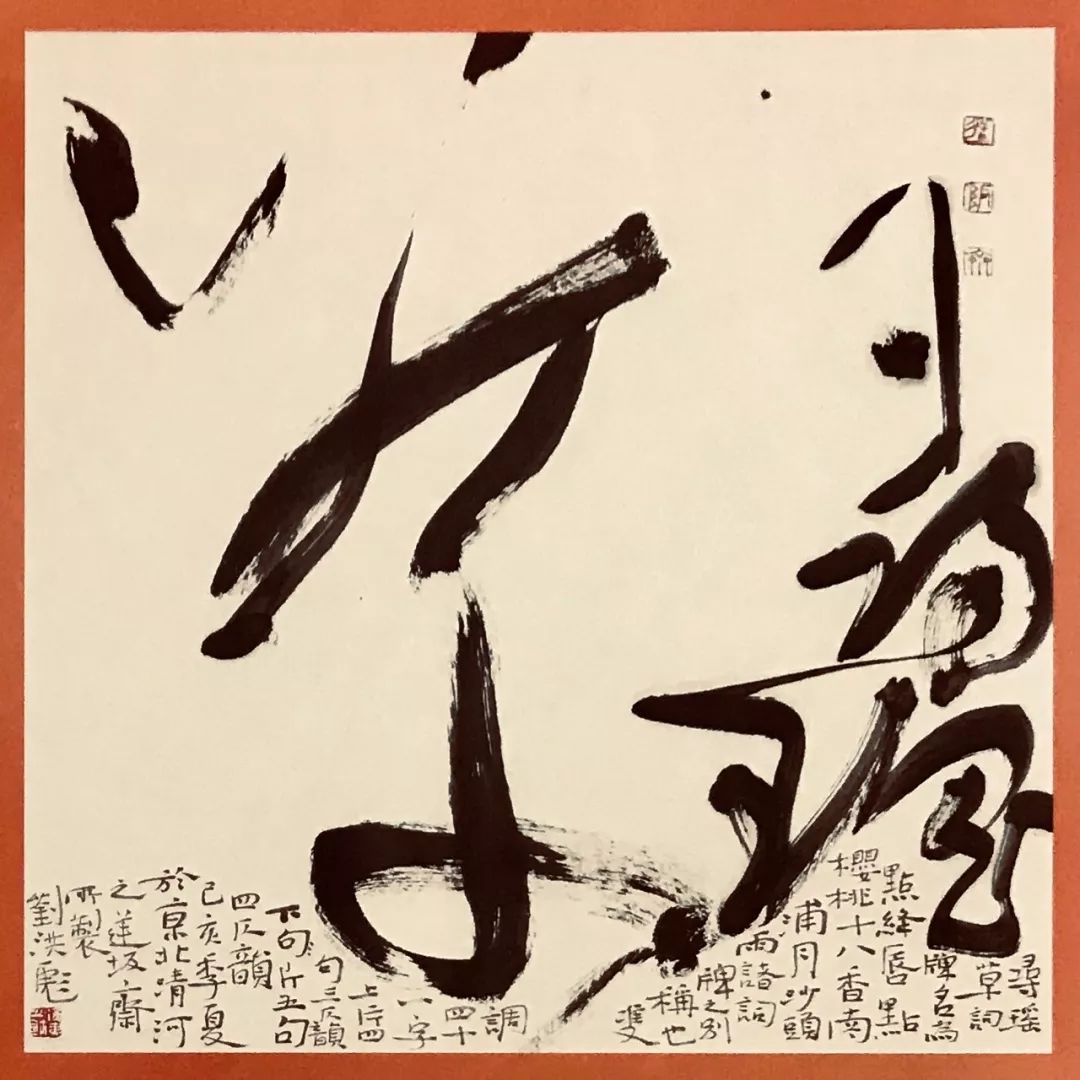 尋瑤草
尋瑤
草詞
牌名為
點絳唇點
櫻桃十八香南
浦月沙頭
雨諸詞
牌之別
稱也
雙
調
四十
一字
上片四
句三仄韻
下句片五句
四仄韻
己亥季夏
於京北清河
之蓮坂齋
所製
劉洪彪